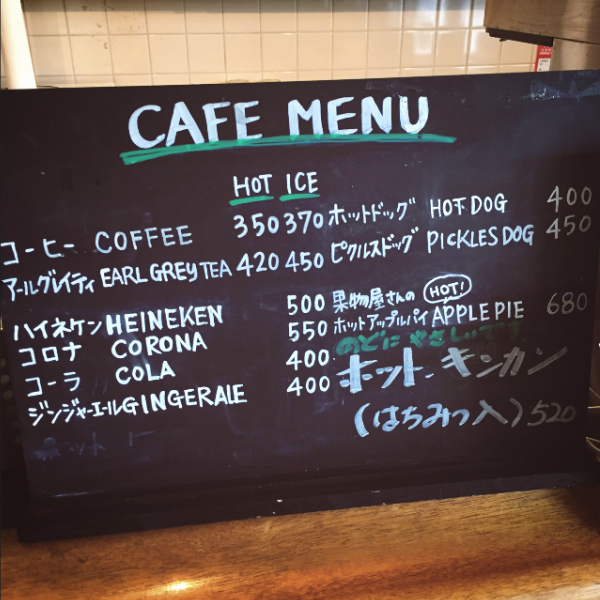 CAFE MENU
HOT ICE
コーヒー COFFEE 350 370
アールグレイティ EARL GREY TEA 420 450
ハイネケン HEINEKEN 500
コロナ CORONA 550
コーラ COLA 400
ジンジャーエール GINGERALE 400
ホットドッグ HOT DOG 400
ピクルスドッグ PICKLES DOG 450
果物屋さんの HOT!
ホットアップルパイ APPLE PIE 680
のどに やさしいです
ホット・キンカン
(はちみつ入) 520